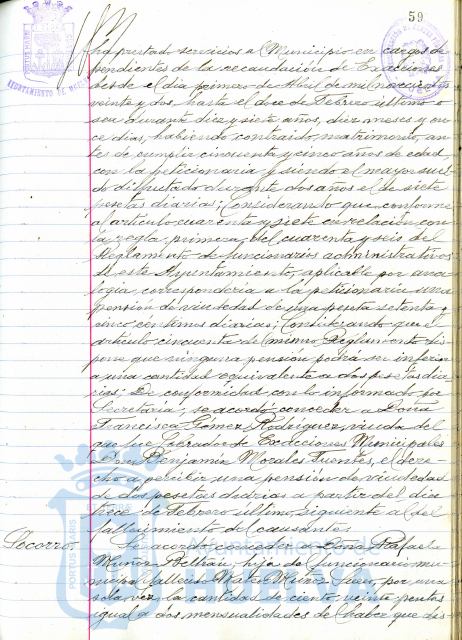 59
ha prestado servicios al Municipio en cargos de-
pendientes de la recaudación de Exacciones
desde el día primero de Abril de mil novecientos
veinte y dos, hasta el doce de Febrero último o
sea durante diez y siete años, diez meses y on-
ce días, habiendo contraido matrimonio, an-
tes de cumplir cincuenta y cinco años de edad
con la peticionaria y siendo el mayor suel-
do disfrutado durante dos años el de siete
pesetas diarias; Considerando que conforme
al artículo cuarenta y siete en relación con
la regla primera del cuarenta y seis del
Reglamento de funcionarios administrativos
de este Ayuntamiento, aplicable por ana-
logía, correspondería a la peticionaria una
pensión de viudedad de una peseta setenta y
cinco céntimos diarias; Considerando que el
artículo cincuenta del mismo Reglamento dis-
pone que ninguna pensión podrá ser inferior
a una cantidad equivalente a dos pesetas dia-
rias; De conformidad con lo informado por
Secretaría; se acordó conceder a Doña
Francisca Gómez Rodríguez, viuda del
que fue Cobrador de Exacciones Municipales
Don Benjamín Morales Fuentes, el dere-
cho a percibir una pensión de viudedad
de dos pesetas diarias a partir del día
trece de Febrero último, siguiente al del
fallecimiento del causante.
Socorro. Se acordó conceder a Doña Rafaela
Muñoz Beltrán, hija del funcionario mu-
nicipal fallecido Mateo Muñoz, por una
sola vez, la cantidad de ciento veinte pesetas
igual a dos mensualidades del haber que dis-
AYUNTAMIENTO DE
PORTUS MARIS
Ayuntamiento de